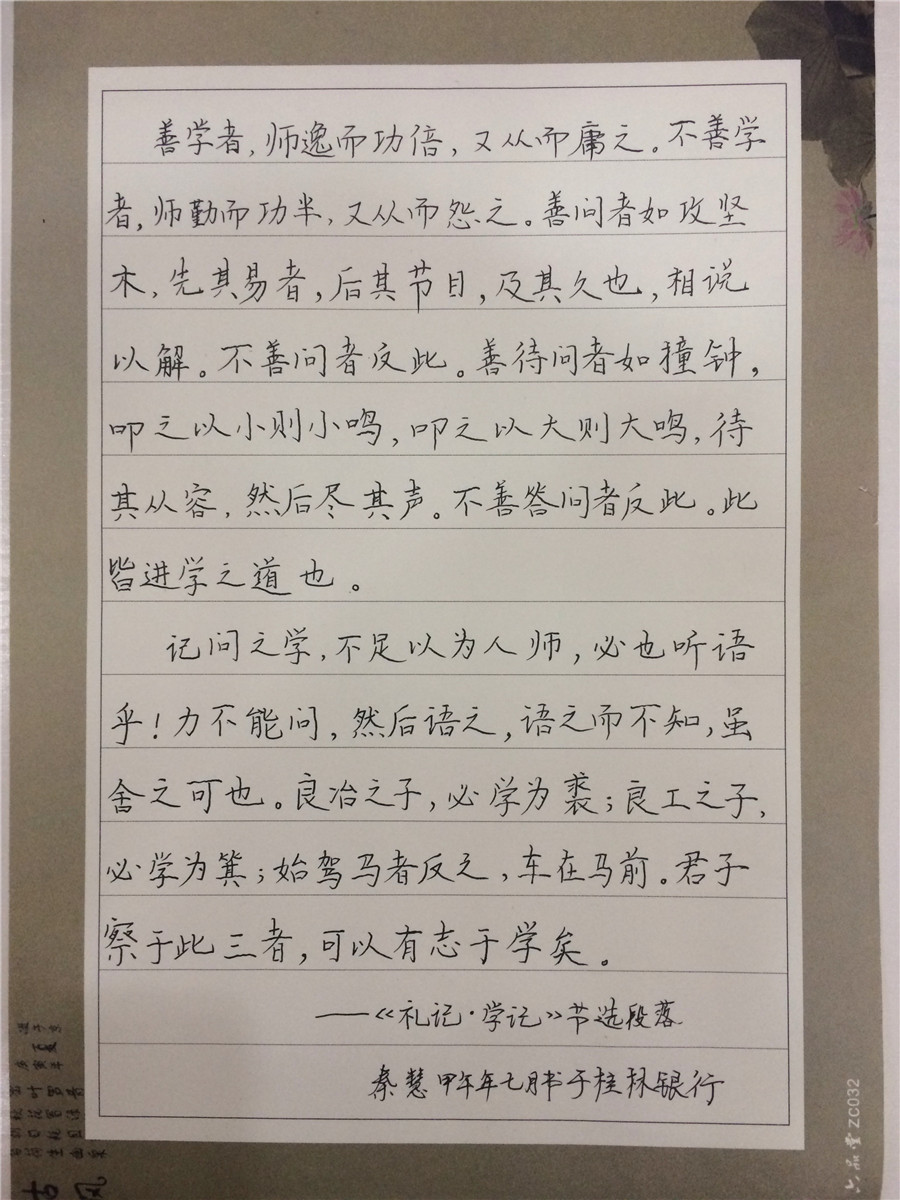 善学者,师逸而功倍,又从而庸之。不善学
者,师勤而功半,又从而怨之。善问者如攻坚
木,先其易者,后其节目,及其久也,相说
以解。不善问者反此。善待问者如撞钟,
叩之以小则小鸣,叩之以大则大鸣,待
其从容,然后尽其声。不善答问者反此。此
皆进学之道也。
记问之学,不足以为人师,必也听语
乎!力不能问,然后语之,语之而不知,虽
舍之可也。良冶之子,必学为裘;良工之子,
必学为箕;始驾马者反之,车在马前。君子
察于此三者,可以有志于学矣。
——《礼记·学记》节选段落
秦慧甲午年七月书于桂林银行
六品堂 ZC032
古风